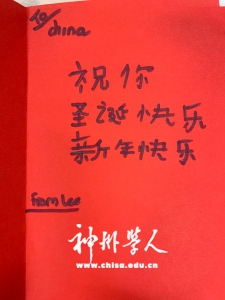 To/china
祝你
圣诞快乐
新年快乐
from Lee
神州学人
www.chisa.edu.cn